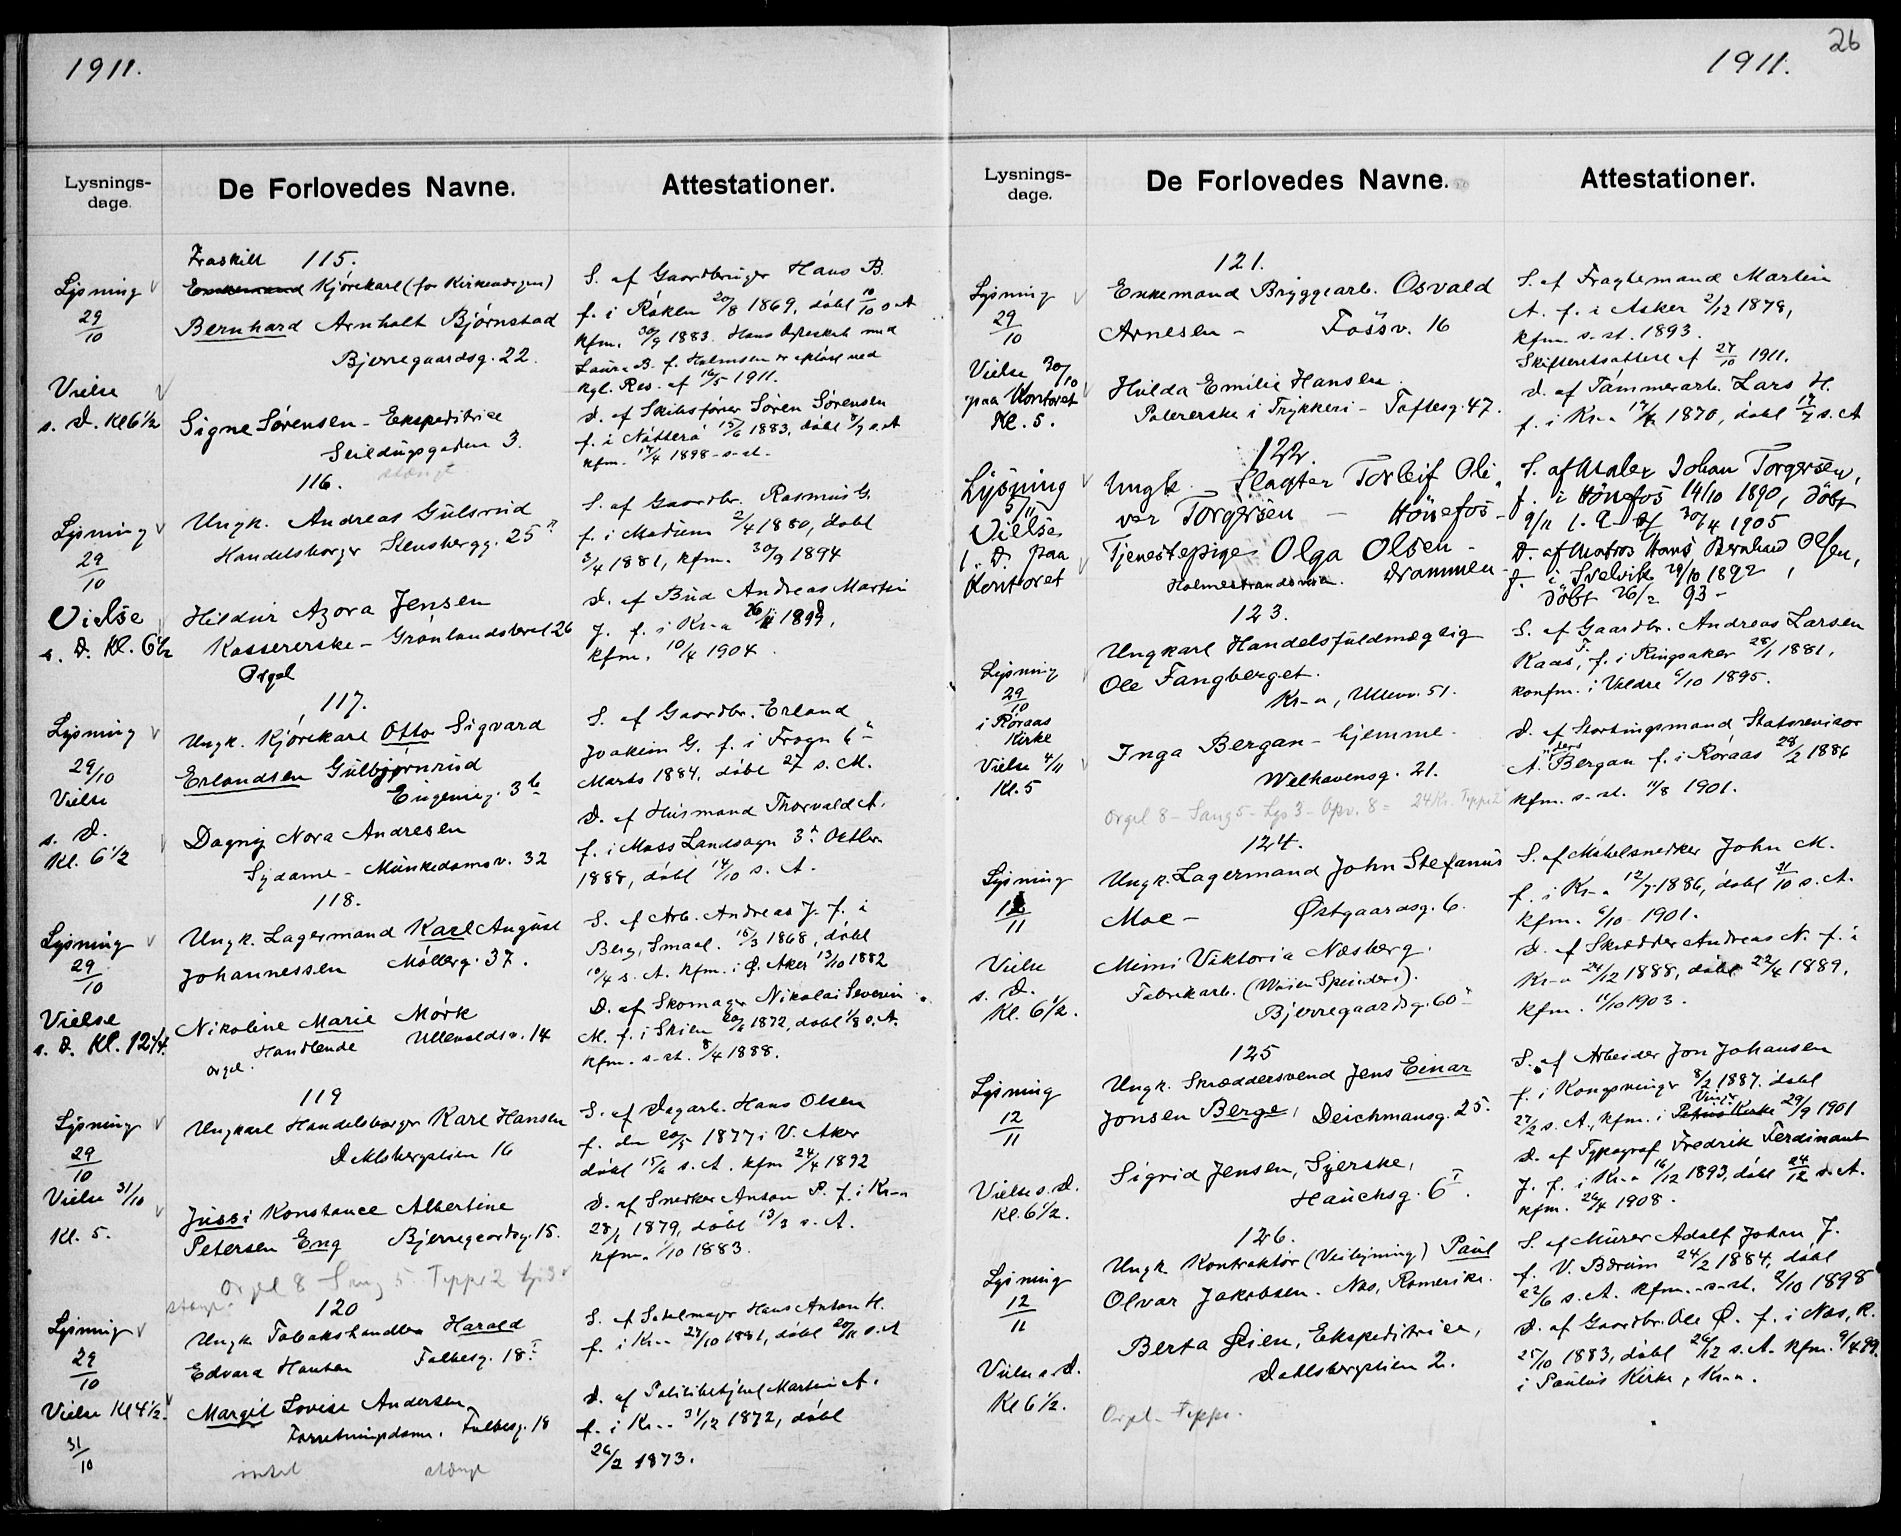 1911.
Lysnings-
dage.
De Forlovedes Navne.
Attestationer.
Lysning
29/10
Vielse
s. D. Kl 6 1/2
Fraskilt 115.
Enkemand Kjørekarl (for Kirkevergen)
Bernhard Arnholt Bjørnstad
Bjerregaardsg. 22.
Signe Sørensen - Ekspeditrice
Seildugsgaden 3.
stængt
S. af Gaardbruger Hans B.
f. i Røken 20/8 1869, døbt 10/10 s. A
kfm. 30/9 1883. Hans Ægteskab med
Laura B. f. Holmsen er opløst ved
Kgl. Res. af 16/5 1911.
D. af Skibsfører Søren Sørensen
f. i Nøtterø 15/6 1883, døbt 8/7 s. A
kfm. 17/4 1898 - s. st.
Lysning
29/10
Vielse
s. D. Kl. 6 1/2
116.
Ungk. Andreas Gulsrud
Handelsborger Stensbergg. 25
Hildur Azora Jensen
Kassererske - Grønlandsleret 26
Orgel
S. af Gaardbr. Rasmus G.
f. i Modum 2/4 1880, døbt
3/4 1881, kfm. 30/9 1894
D. af Bud Andreas Martin
J. f. i Kr-a
kfm. 10/4 1904
Lysning
29/10
Vielse
s. D.
Kl. 6 1/2
117.
Ungk. Kjørekarl Otto Sigvard
Erlandsen Gulbjørnrud
Eugenieg. 3 b
Dagny Nora Andresen
Sydame - Munkedamsv. 32
S. af Gaardbr. Erland
Joakim G. f. i Frogn 6te
Marts 1884, døbt 27 s. M.
D. af Husmand Thorvald A.
f. i Moss Landsogn 3 Octbr.
1888, døbt 14/10 s. A.
Lysning
29/10
Vielse
s. D. Kl. 12 1/4
118.
Ungk. Lagermand Karl August
Johannessen Møllerg. 37.
Nikoline Marie Mørk
Handlende Ullevoldsv. 14
Orgel.
S. af Arb. Andreas J. f. i
Berg, Smaal. 15/3 1868, døbt
10/4 s. A. kfm. i Ø. Aker 13/10 1882
D. af Skomager Nikolai Severin
M. f. i Skien 1872, døbt 1/8 s. A.
kfm. s. st. 8/4 1888.
Lysning
29/10
Vielse 31/10
Kl. 5.
119
Ungkarl Handelsborger Karl Hansen
Dahlsbergstien 16
Jussi Konstance Albertine
Petersen Eng Bjerregaardsg. 15.
Orgel 8 Sang 5 Teppe 2 Lys 3
S. af Dagarb. Hans Olsen
f. den 20/5 1877 i V. Aker
døbt s. A. kfm 24/4 1892
D. af Snedker Anton P. f. i Kr-a
28/1 1879, døbt 13/3 s. A.
kfm. 1/10 1883.
Lysning
29/10
Vielse Kl 4 1/2.
31/10
stængt.
120
Ungk Tobakshandler Harald
Edvard Hansen Falbesg. 18 I
Margit Lovise Andersen
Forretningsdame. Falbesg. 18
stængt
S. af Sadelmager Hans Anton H.
f. i Kr-a 27/10 1881, døbt s. A
D. af Politibetjent Martin A.
f. i Kr-a 31/12 1872, døbt
26/2 1873.
26
1911.
Lysnings-
dage.
De Forlovedes Navne.
Attestationer.
Lysning
29/10
Vielse 30/10
paa Kontoret
Kl. 5.
121.
Enkemand Bryggearb. Osvald
Arnesen - Fossv. 16
Hilda Emilie Hansen.
Polererske i Trykkeri - Toftesg. 47.
S. af Fragtemand Martin
A. f. i Asker 2/12 1878,
kfm. s. st. 1893.
Skifteretsattest af 27/10 1911.
D. af Tømmerarb. Lars H.
f. i Kr-a 1870, døbt s. A
Lysning
5/11
Vielse
s. D. paa
Kontoret
122.
Ungk. Slagter Torleif Oli-
ver Torgersen - Hønefos -
Tjenestepige Olga Olsen -
Holmestrandsveien. Drammen -
S. af Maler Johan Torgersen,
f. i Hønefos 14/10 1890, døbt
9/11 s. A - kf 30/4 1905
D. af Matros Hans Bernhard Olsen,
f. i Svelvik 28/10 1892,
døbt 26/2 93 -
Lysning
29/10
i Røraas
Kirke
Vielse 4/11
Kl. 5
123.
Ungkarl Handelsfuldmægtig
Ole Fangberget.
Kr-a, Ullevv. 51.
Inga Bergan - hjemme.
Welhavensg. 21.
Orgel 8 - Sang 5 - Lys 3 - Opv. 8 = 24 Kr. Teppe 2
S. af Gaardbr. Andreas Larsen
Kaas, f. i Ringsaker 28/1 1881,
konfm. i Veldre 6/10 1895.
D. af Stortingsmand Statsrevisor
A. Bergan f. i Røraas 28/2 1886
kfm. s. st. 11/8 1901.
Lysning
12/11
Vielse
s. D.
Kl. 6 1/2.
124.
Ungk. Lagermand John Stefanus
Moe - Østgaardsg. 6.
Mimi Viktoria Næsberg.
Fabrikarb. (Vøien Spinderi).
Bjerregaardsg. 60
S. af Møbelsnedker John M.
f. i Kr-a 12/7 1886, døbt 31/10 s. A.
kfm. 6/10 1901.
D. af Skrædder Andreas N. f. i
Kr-a 24/12 1888, døbt 22/4 1889,
kfm. 11/10 1903.
Lysning
12/11
Vielse s. D.
Kl. 6 1/2.
125
Ungk. Skræddersvend Jens Einar
Jonsen Berge, Deichmansg. 25.
Sigrid Jensen, Syerske,
Hauchsg. 6 I.
S. af Arbeider Jon Johansen
f. i Kongsvinger 8/2 1887. døbt
27/2 s. A., kfm. i Petrus Kirke 29/9 1901
Vinger
D. af Typograf Fredrik Ferdinant
J. f. i Kr-a 16/12 1893, døbt 24/12 s. A.
kfm. 26/4 1908.
Lysning
12/11
Vielse s. D.
Kl 6 1/2.
126.
Ungk Kontraktør (Veibygning) Paul
Olvar Jakobsen. Nes, Romerike.
Berta Øien, Ekspeditrice,
Dahlsbergstien 2.
Orgel - Teppe.
S. af Murer Adolf Johan J.
f. V. Bærum 24/2 1884, døbt
22/6 s. A. kfm. s. st. 2/10 1898
D. af Gaardbr. Ole Ø. f. i Nes, R.
25/10 1883, døbt 26/12 s. A. kfm. 9/4 99.
i Paulus Kirke, Kr-a.